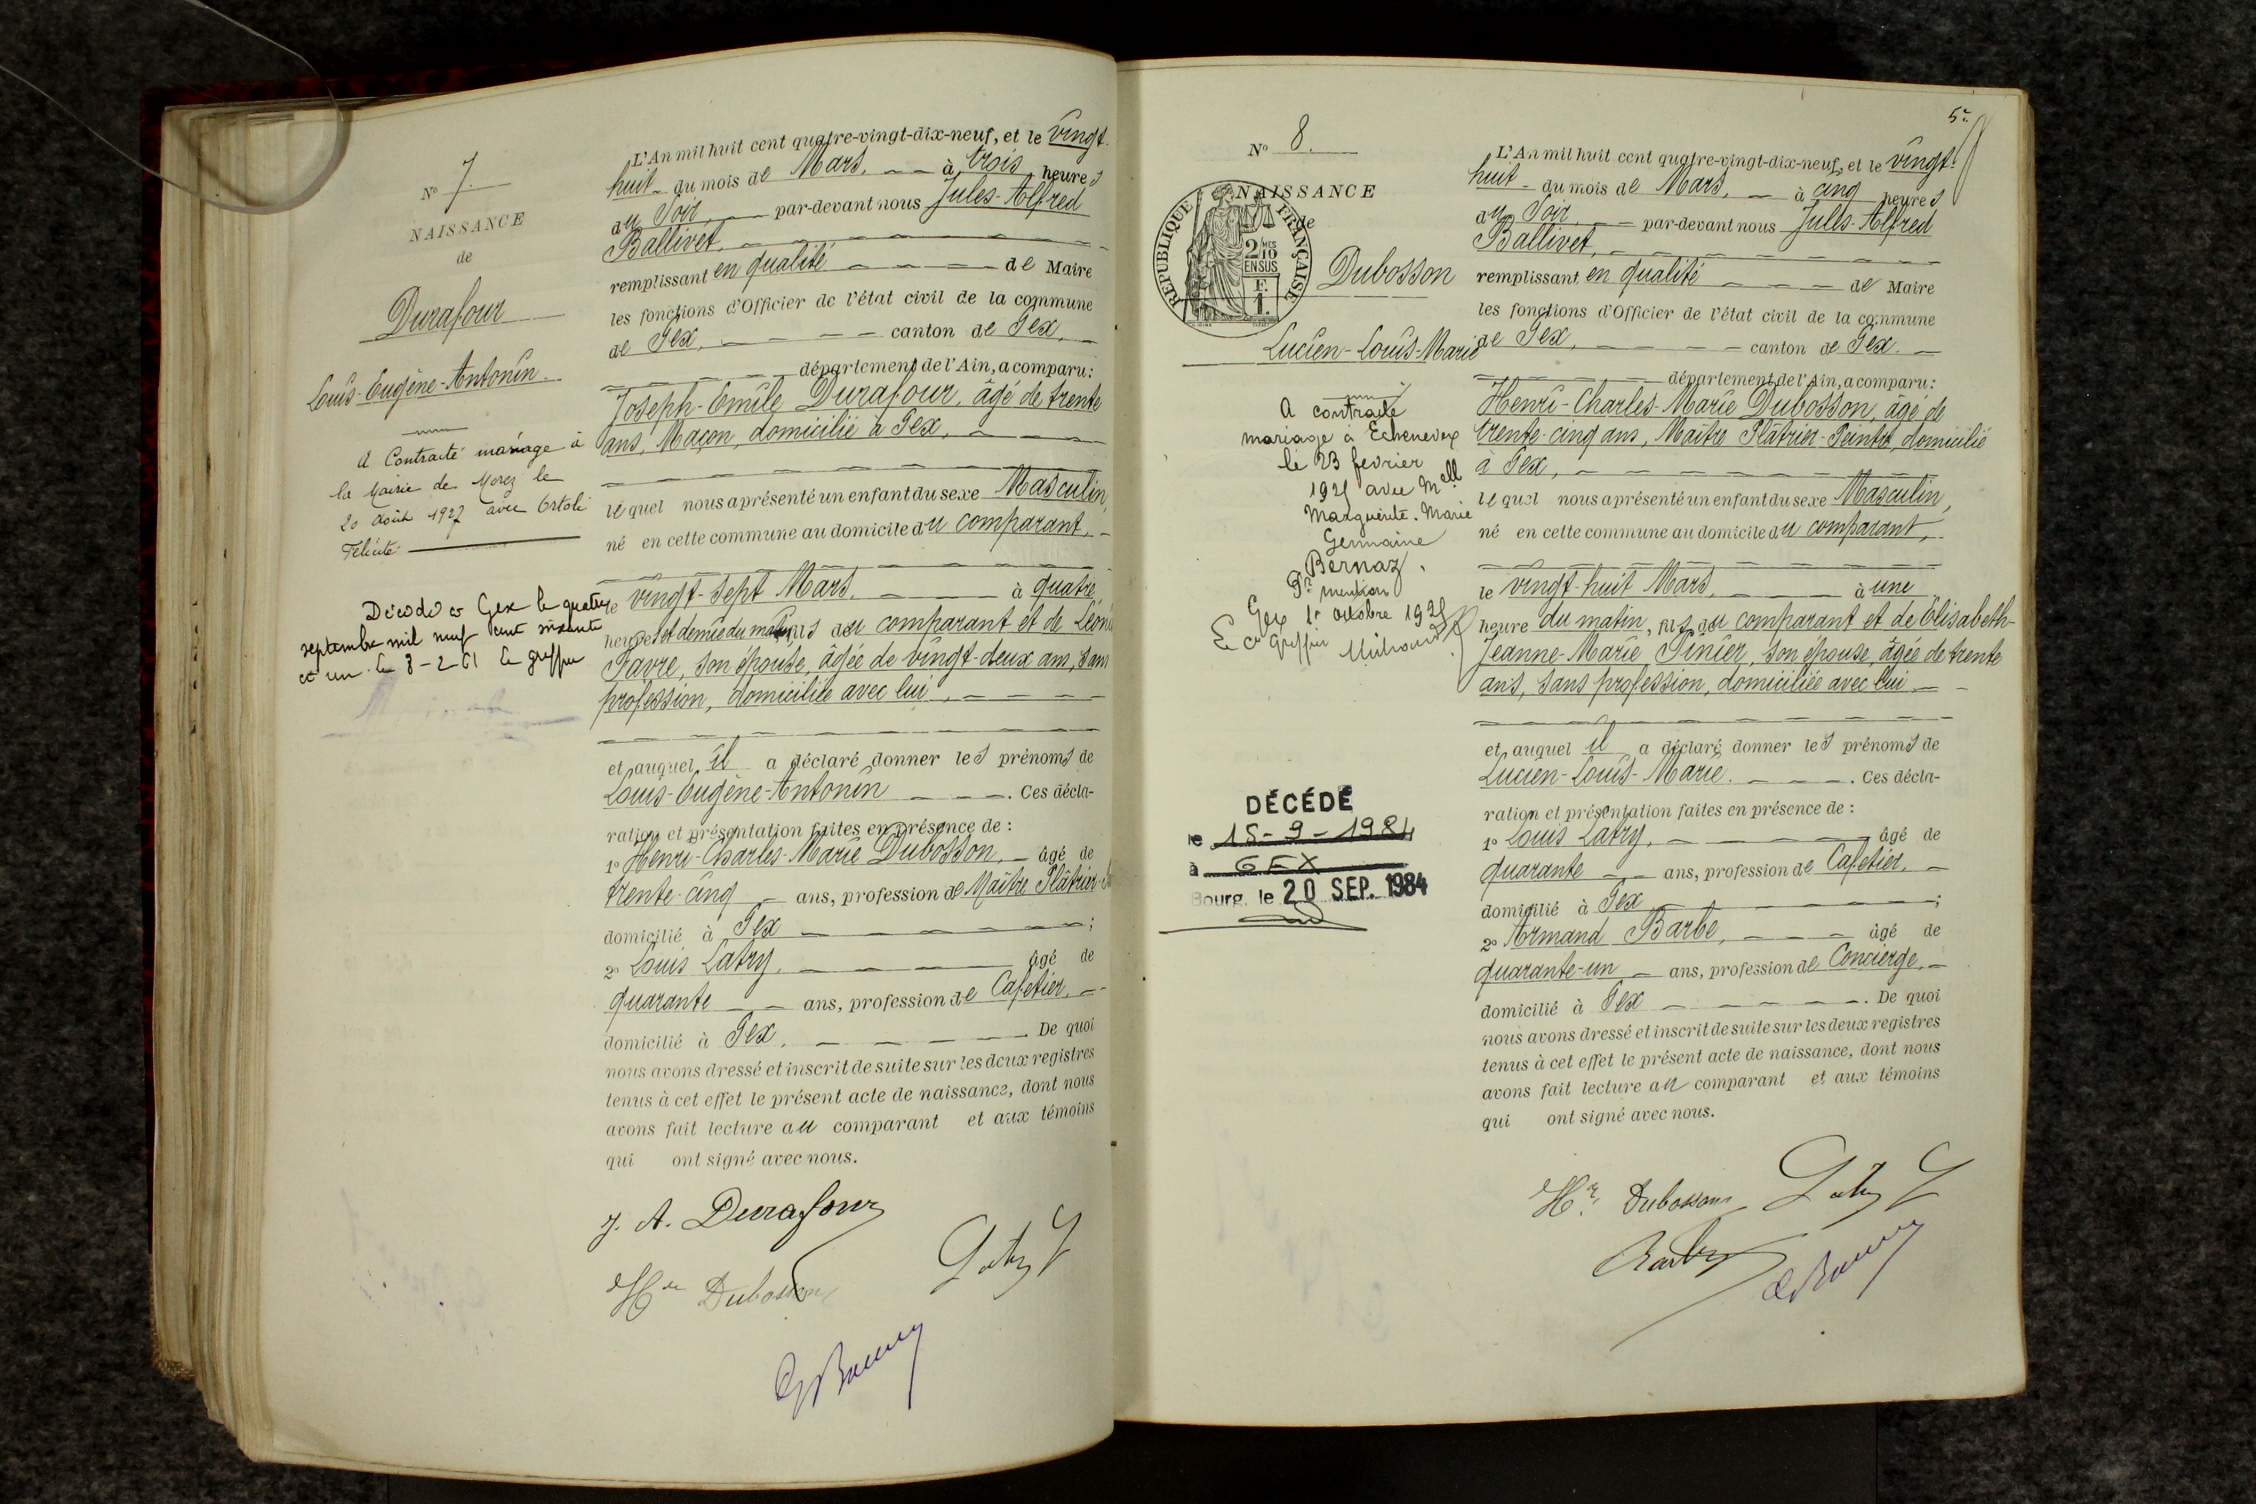 N° 7.
NAISSANCE
de
Durafour
Louis-Eugène-Antonin.
A Contracté mariage à
la Mairie de Morez le
20 Août 1927 avec Ortoli
Félicité
Décédé à Gex le quatre
septembre mil neuf cent soixante
et un. Le greffier
L'An mil huit cent quatre-vingt-dix-neuf, et le vingt-
huit du mois de Mars, à trois heures
du Soir, par-devant nous Jules-Alfred
Ballivet,
remplissant en qualité de Maire
les fonctions d'Officier de l'état civil de la commune
de Gex, canton de Gex,
département de l'Ain, a comparu:
Joseph-Emile Durafour, âgé de trente
ans, Maçon, domicilié à Gex,
lequel nous a présenté un enfant du sexe Masculin,
né en cette commune au domicile du comparant,
le vingt-sept Mars, à quatre
heures et demie du matin, fils du comparant et de
Favre, son épouse, âgée de vingt-deux ans, sans
profession, domiciliée avec lui,
et auquel il a déclaré donner les prénoms de
Louis-Eugène-Antonin. Ces décla-
ration et présentation faites en présence de :
1° Henri-Charles-Marie Dubosson, âgé de
trente-cinq ans, profession de Maître Plâtrier
domicilié à Gex ;
2° Louis Latry, âgé de
quarante ans, profession de Cafetier,
domicilié à Gex. De quoi
nous avons dressé et inscrit de suite sur les deux registres
tenus à cet effet le présent acte de naissance, dont nous
avons fait lecture au comparant et aux témoins
qui ont signé avec nous.
J. A. Durafour
Hri Dubosson Latry
5e
N° 8.
NAISSANCE
de
RÉPUBLIQUE FRANÇAISE
2/10 MES
EN SUS
F.
1.
Dubosson
Lucien-Louis-Marie
A contracté
mariage à Echenevex
le 23 février
avec Mell
Marguerite. Marie
Germaine
Bernaz.
Pr mention
Gex 1er octobre
Le Greffier
DÉCÉDÉ
le 15-9-1984
à GEX
Bourg, le 20 SEP. 1984
L'An mil huit cent quatre-vingt-dix-neuf, et le vingt-
huit du mois de Mars, à cinq heures
du Soir, par-devant nous Jules-Alfred
Ballivet,
remplissant en qualité de Maire
les fonctions d'Officier de l'état civil de la commune
de Gex, canton de Gex.
département de l'Ain, a comparu:
Henri-Charles-Marie Dubosson, âgé de
trente-cinq ans, Maître Plâtrier-Peintre, domicilié
à Gex,
lequel nous a présenté un enfant du sexe Masculin,
né en cette commune au domicile du comparant,
le vingt-huit Mars, à une
heure du matin, fils du comparant et de Elisabeth-
Jeanne-Marie Pinier, son épouse, âgée de trente
ans, sans profession, domiciliée avec lui
et auquel il a déclaré donner les prénoms de
Lucien-Louis-Marie. Ces décla-
ration et présentation faites en présence de :
1° Louis Latry, âgé de
quarante ans, profession de Cafetier,
domicilié à Gex ;
2° Armand Barbe, âgé de
quarante-un ans, profession de Concierge,
domicilié à Gex. De quoi
nous avons dressé et inscrit de suite sur les deux registres
tenus à cet effet le présent acte de naissance, dont nous
avons fait lecture au comparant et aux témoins
qui ont signé avec nous.
Hri Dubosson Latry
Barbe